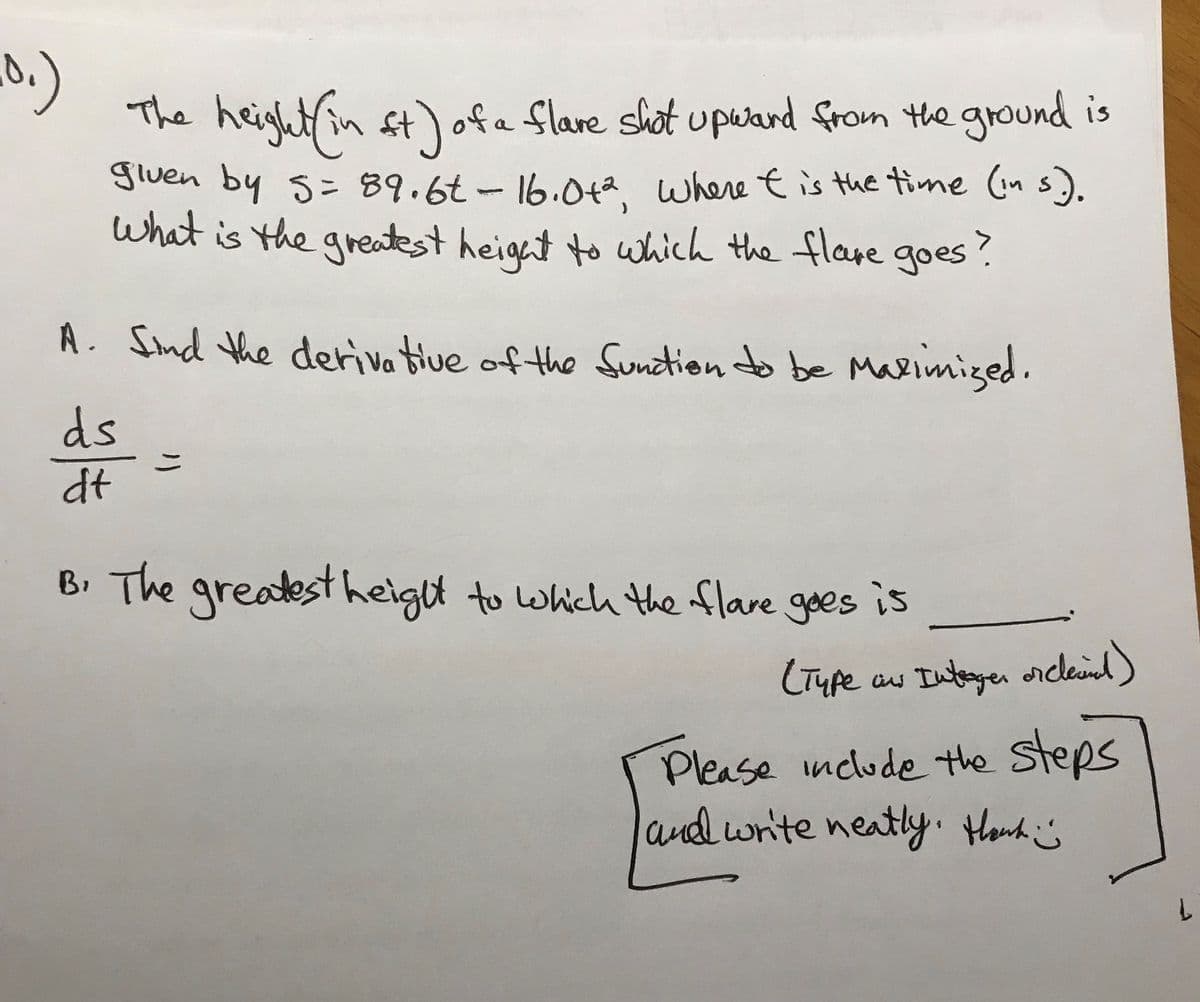 0.)
The height (in ft) of a flare shot upward from the ground is
given by s = 89.6t - 16.0t², where t is the time (in s).
What is the greatest height to which the flare goes?
A. find the derivative of the function to be Maximized.
ds/dt =
B. The greatest height to which the flare goes is ____.
(Type an Integer or
Please include the steps
and write neatly. thank :)